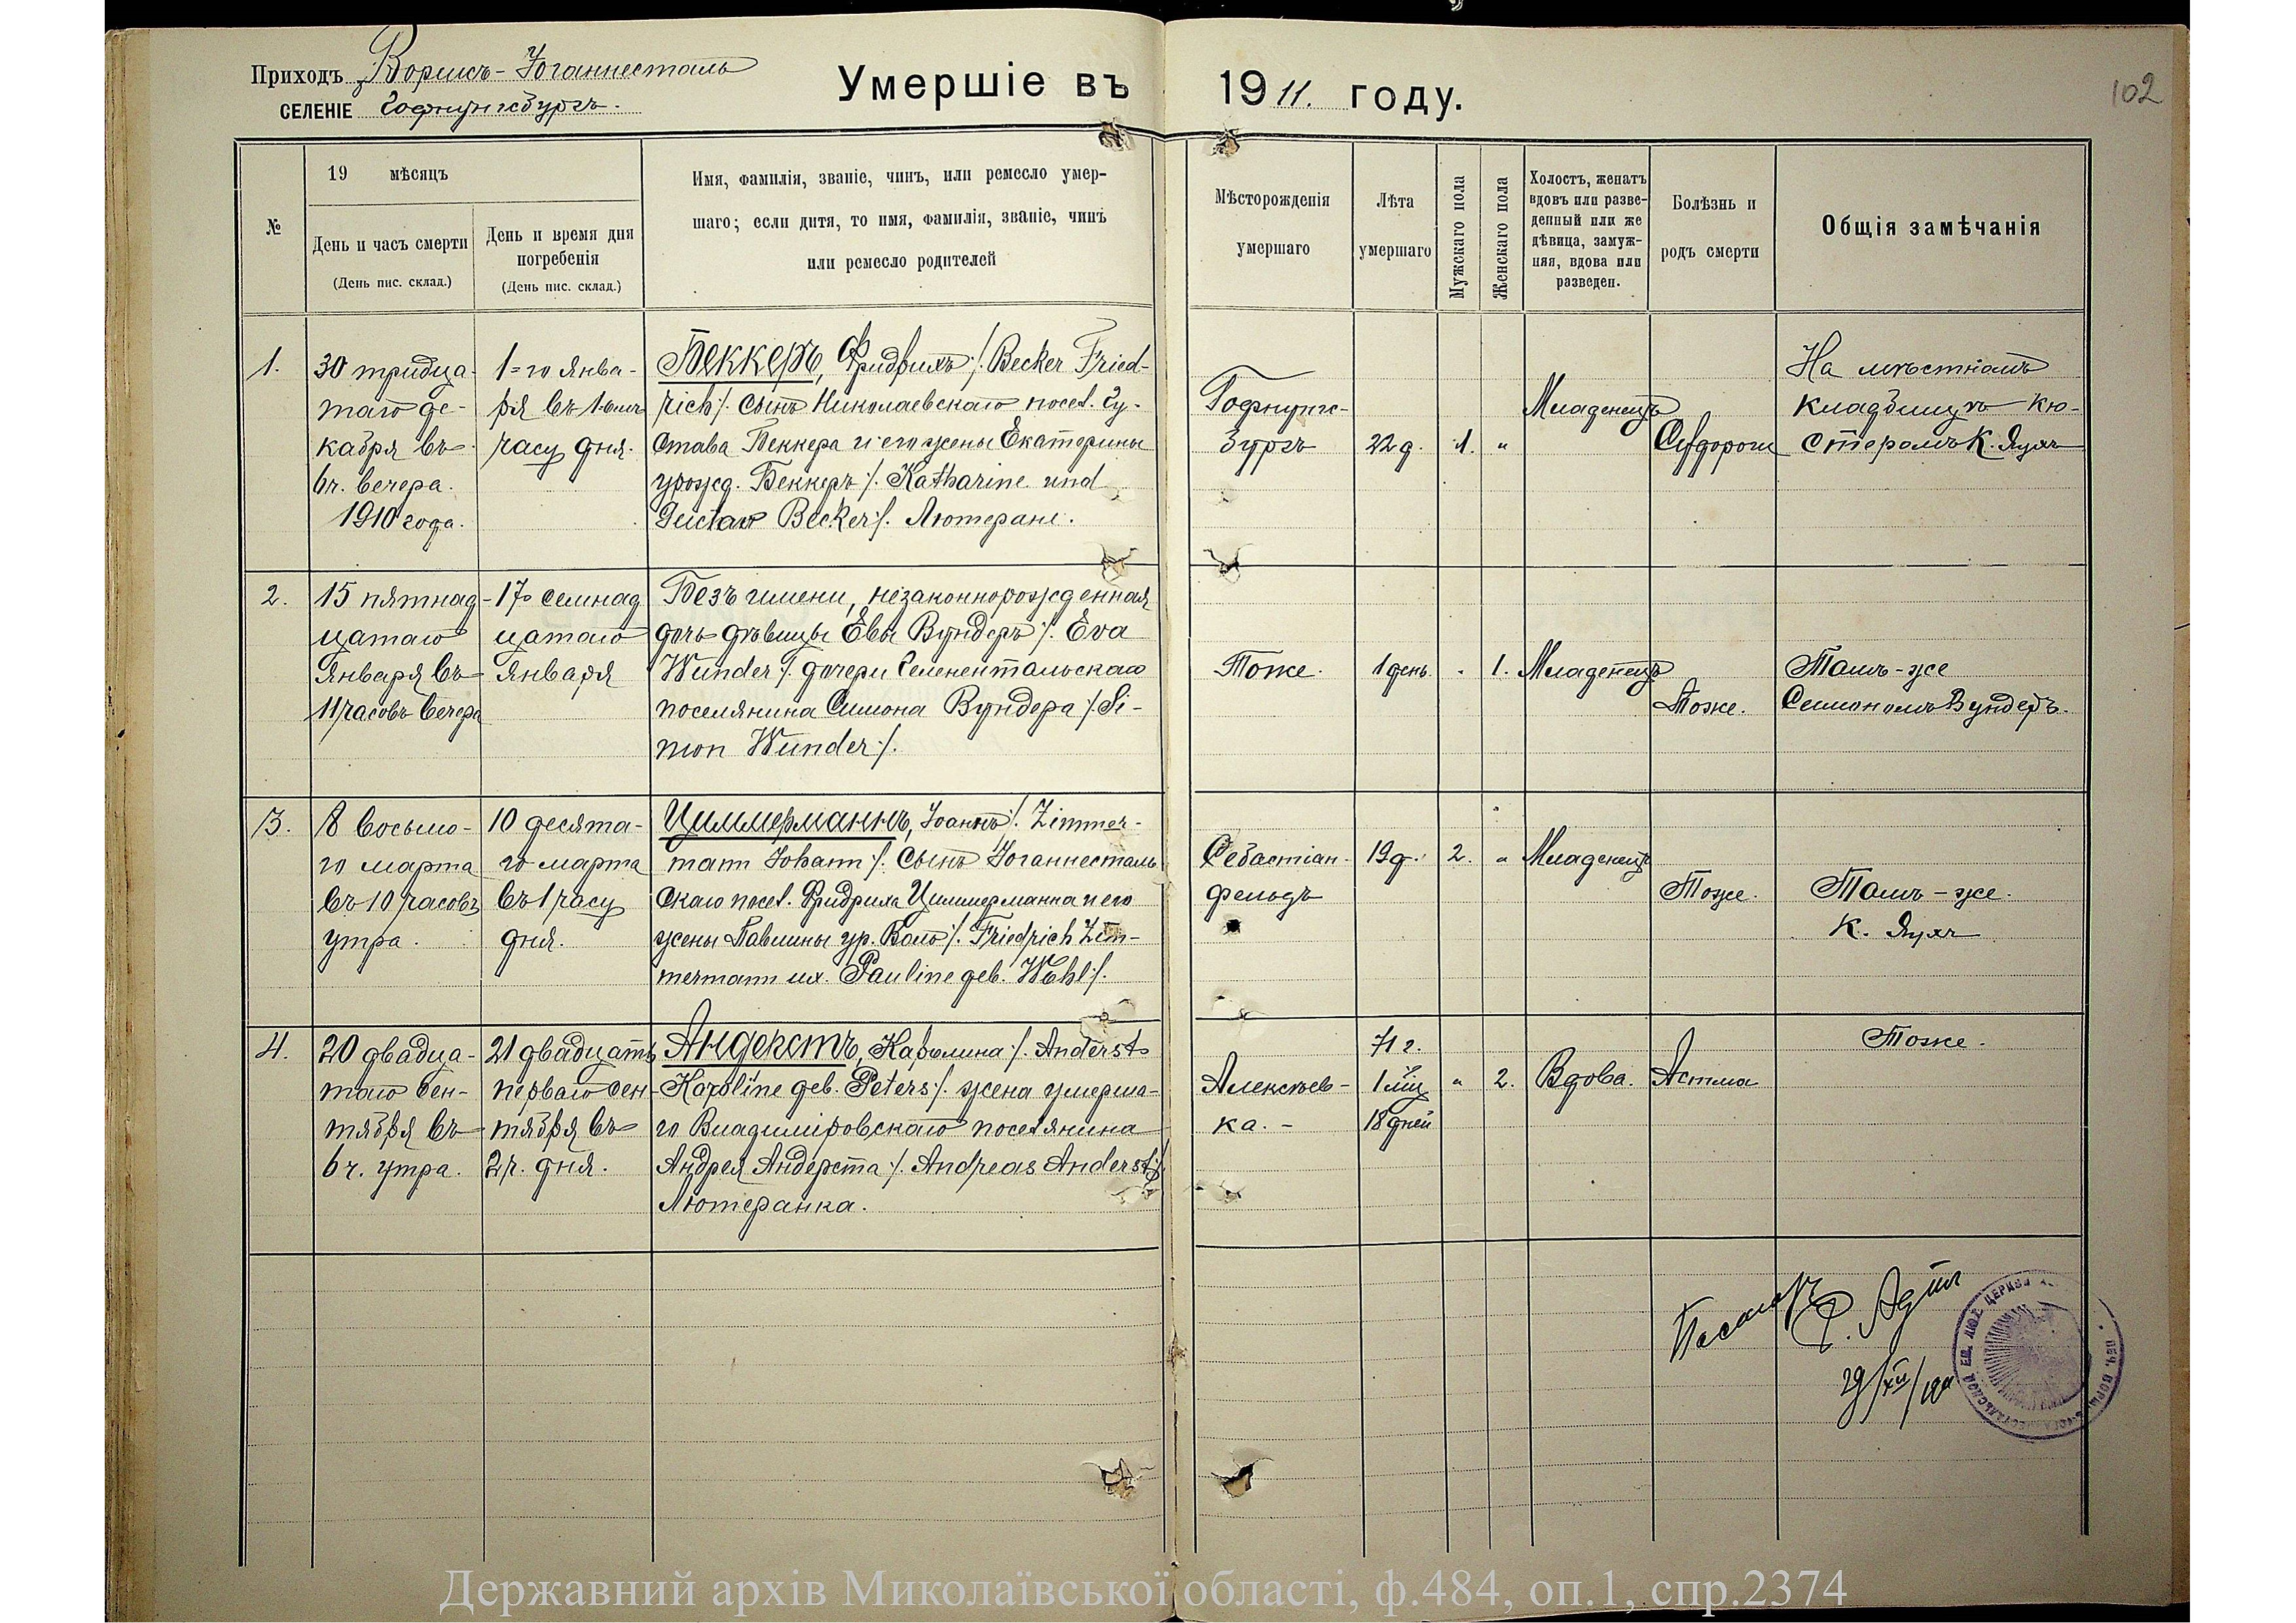 Приходъ Вормсъ-Іоганнесталь
СЕЛЕНІЕ Гофнунгсбургъ.
Умершіе въ 1911. году.
102
№
19 мѣсяцъ
День и часъ смерти
(День пис. склад.)
День и время дня
погребенія
(День пис. склад.)
Имя, фамилія, званіе, чинъ, или ремесло умер-
шаго; если дитя, то имя, фамилія, званіе, чинъ
или ремесло родителей
Мѣсторожденія
умершаго
Лѣта
умершаго
Мужскаго пола
Женскаго пола
Холостъ, женатъ
вдовъ или разве-
денный или же
дѣвица, замуж-
няя, вдова или
разведен.
Болѣзнь и
родъ смерти
Общія замѣчанія
1.
30 тридца-
таго де-
кабря въ
6ч. вечера.
1910 года.
1=го Янва-
ря въ 1-омъ
часу дня.
Беккеръ, Фридрихъ /: Becker Fried-
rich :/. Сынъ Николаевскаго посел. Гу-
става Беккера и его жены Екатерины
урожд. Беккеръ /: Katharine und
Gustav Becker :/. Лютеране.
Гофнунгс-
бургъ
22 д.
1.
"
Младенецъ
Судороги
На мѣстномъ
кладбищѣ Кю-
стеромъ К. Яухъ
2.
15 пятнад-
цатаго
Января въ
11 часовъ вечера
17 семнад
цатаго
Января
Безъ имени, незаконнорожденная
дочь дѣвицы Евы Вундеръ /: Eva
Wunder :/. дочери Селенентальскаго
поселянина Симона Вундера /: Si-
mon Wunder :/.
Тоже.
1 день.
"
1.
Младенецъ
Тоже.
Тамъ-же
Семеномъ Вундеръ.
3.
8 восьмо-
го марта
въ 10 часовъ
утра.
10 десята-
го марта
въ 1 часу
дня.
Циммерманнъ, Іоаннъ /: Zimmer-
mann Johann :/. Сынъ Іоганнесталь
скаго посел. Фридриха Циммерманна и его
жены Павлины ур. Воль /: Friedrich Zim-
mermann их. Pauline geb. Wohl :/.
Себастіан-
фельдъ
19 д.
2.
"
Младенецъ
Тоже.
Тамъ-же.
К. Яухъ
4.
20 двадца-
таго Сен-
тября въ
6 ч. утра.
21 двадцать
перваго Сен-
тября въ
2 ч. дня.
Андерстъ, Каролина /: Anderst
Karoline geb. Peters :/. жена умерша-
го Владиміровскаго поселянина
Андрея Андерста /: Andreas Anderst :/
Лютеранка.
Алексѣев-
ка.-
71 г.
1 мѣц
18 дней
"
2.
Вдова.
Астма
Тоже.
Пасторъ
29/XII/1911
Державний архів Миколаївської області, ф.484, оп.1, спр.2374